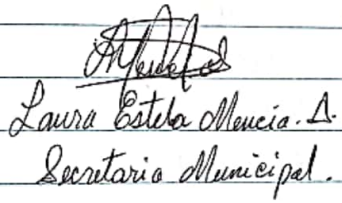 Laura Estela Mencia. A.
Secretaria Municipal.